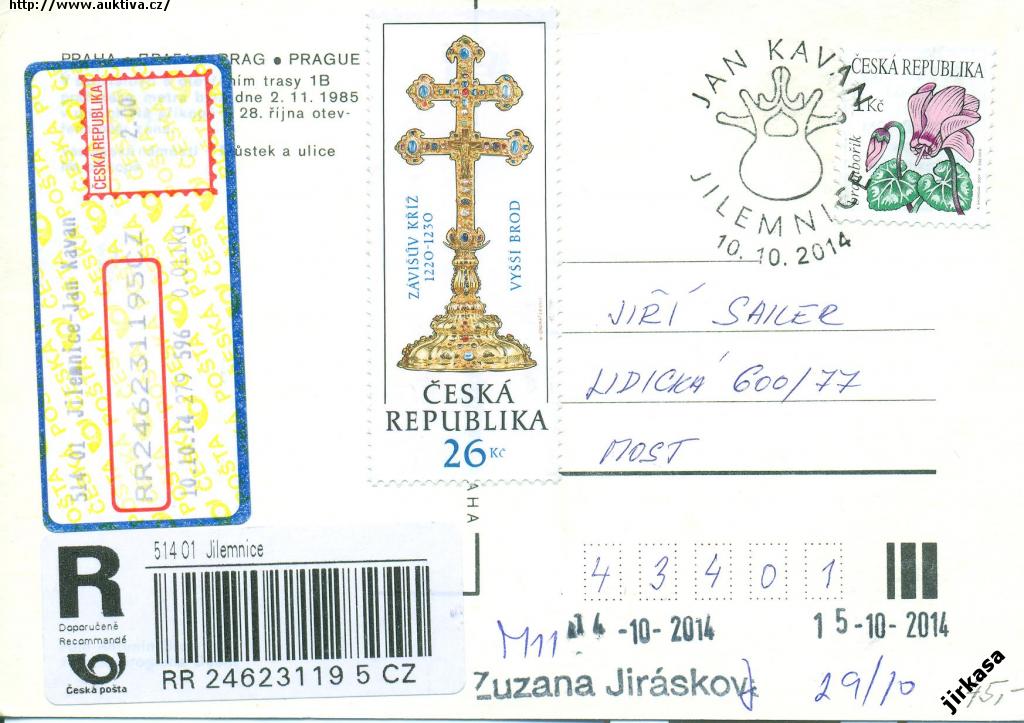 http://www.auktiva.cz/
PRAHA • • PRAG • PRAGUE
ním trasy 1B
metra dne 2. 11. 1985
28. října otev-
ůstek a ulice
ČESKÁ REPUBLIKA
2.00
514 01 Jilemnice-Jan Kavan
RR246231195CZ
10.10.14 279 596 0.011kg
ČESKÁ POŠTA
ZÁVIŠŮV KŘÍŽ
1220-1230
VYŠŠÍ BROD
ČESKÁ
REPUBLIKA
26 Kč
JAN KAVAN
JILEMNICE
10. 10. 2014
ČESKÁ REPUBLIKA
1 Kč
brambořík
JIŘÍ SAILER
LIDICKÁ 600/77
MOST
AHA
4 3 4 0 1
R
514 01 Jilemnice
Doporučeně
Recommandé
Česká pošta
RR 24623119 5 CZ
M11
14 -10- 2014
15 -10- 2014
Zuzana Jirásková
29/10
75,-
jirkasa